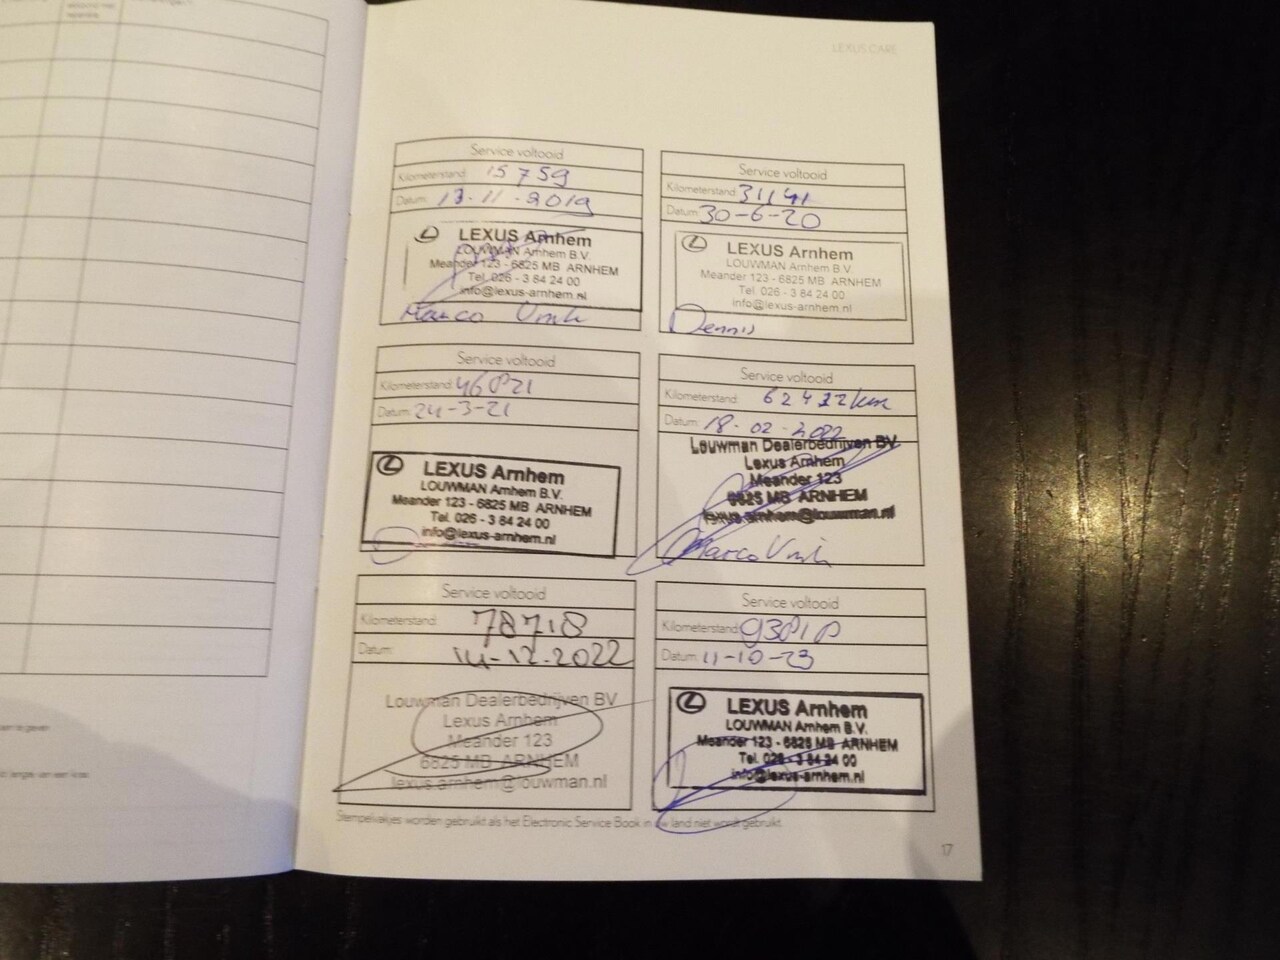 LEXUS CARE
Service voltooid
Kilometerstand: 15759
Datum: 13-11-2019
LEXUS Arnhem
LOUWMAN Arnhem B.V.
Meander 123 - 6825 MB ARNHEM
Tel. 026 - 3 84 24 00
info@lexus-arnhem.nl
Marco Vink
Service voltooid
Kilometerstand: 31141
Datum: 30-6-20
LEXUS Arnhem
LOUWMAN Arnhem B.V.
Meander 123 - 6825 MB ARNHEM
Tel. 026 - 3 84 24 00
info@lexus-arnhem.nl
Dennis
Service voltooid
Kilometerstand: 46821
Datum: 24-3-21
LEXUS Arnhem
LOUWMAN Arnhem B.V.
Meander 123 - 6825 MB ARNHEM
Tel. 026 - 3 84 24 00
info@lexus-arnhem.nl
Service voltooid
Kilometerstand: km
Datum: 18-02-2022
Louwman Dealerbedrijven BV
Lexus Arnhem
Meander 123
6825 MB ARNHEM
lexus.arnhem@louwman.nl
Marco Vink
Service voltooid
Kilometerstand: 78718
Datum: 14-12-2022
Louwman Dealerbedrijven BV
Lexus Arnhem
Meander 123
6825 MB ARNHEM
lexus.arnhem@louwman.nl
Service voltooid
Kilometerstand: 93818
Datum: 11-10-23
LEXUS Arnhem
LOUWMAN Arnhem B.V.
Meander 123 - 6825 MB ARNHEM
Tel. 026 - 3 84 24 00
info@lexus-arnhem.nl
Stempelvakjes worden gebruikt als het Electronic Service Book in uw land niet wordt gebruikt.
17